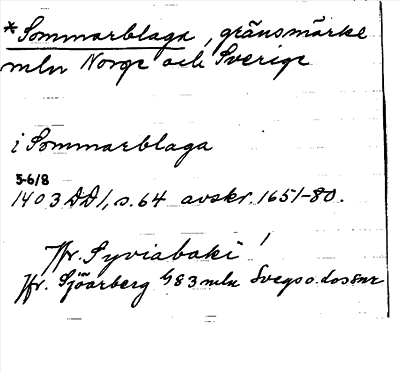 *Sommarblaga, gränsmärke
mln Norge och Sverige
i Sommarblaga
5-6/8
1403 DD 1, s. 64 avskr. 1651-80.
Jfr. Syviabaki !
Jfr. Sjöarberg 483 mln Svegs o.